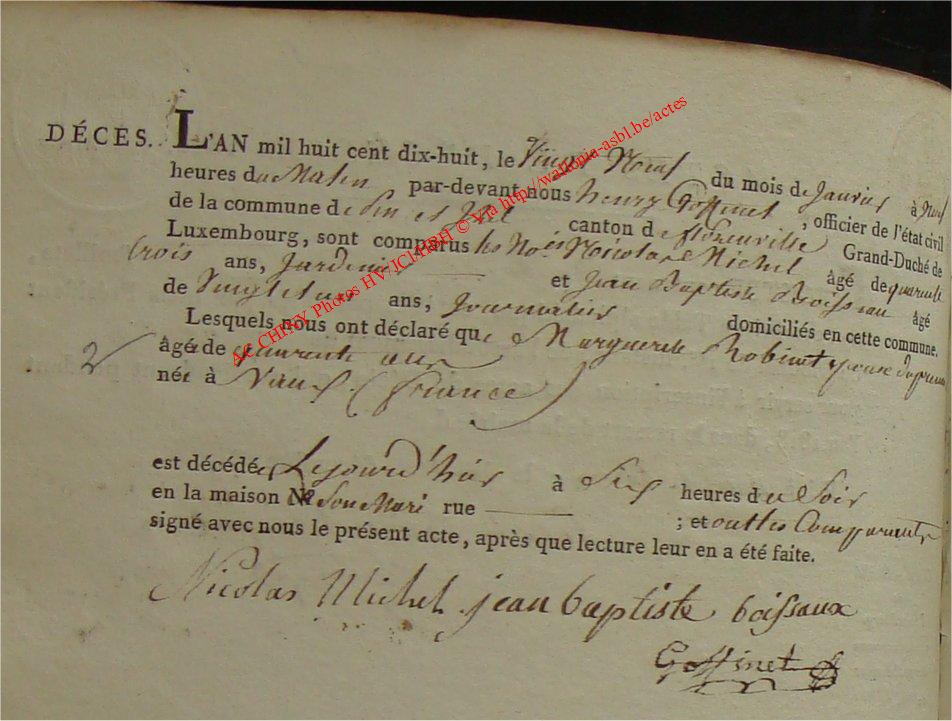 DÉCES. L'AN mil huit cent dix-huit, le Vingt Neuf du mois de Janvier à neuf
heures du Matin par-devant nous henry Goffinet, officier de l'état civil
de la commune de Pin et Izel canton de florenville Grand-Duché de
Luxembourg, sont comparus les Nicolas Michel âgé de quarante
trois ans, Jardinier et Jean Baptiste Boissau âgé
de Vingt et un ans, Journalier domiciliés en cette commune.
Lesquels nous ont déclaré que Marguerite Robinet epouse du premier
2
âgée de quarente ans
née à Vaux (france)
est décédée Lejourd'hier à Six heures du Soir
en la maison de Son Mari rue ; et ont les Comparants
signé avec nous le présent acte, après que lecture leur en a été faite.
Nicolas Michel jean baptiste boissaux
Goffinet
AL CHINY Photos HV/JCl/HBH © Via http://wallonia-asbl.be/actes